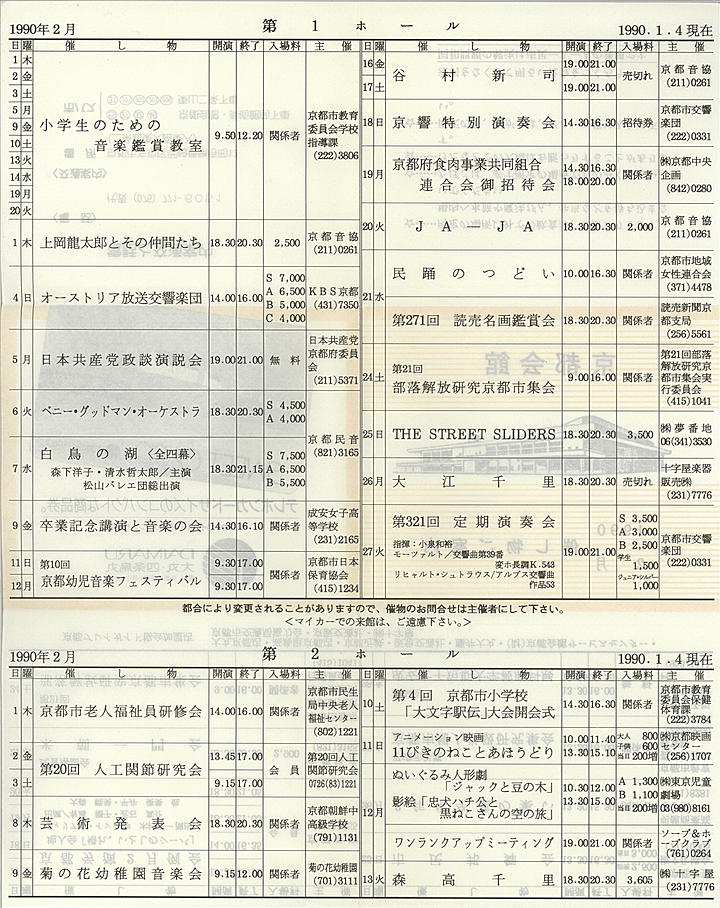 1990年2月 第1ホール 1990.1.4現在
日 曜 催し物 開演 終了 入場料 主催
1 木
2 金
3 土
5 月
9 金
10 土
13 火
14 水
19 月
20 火
小学生のための
音楽鑑賞教室
9.50 12.20 関係者
京都市教育
委員会学校
指導課
(222)3806
1 木 上岡龍太郎とその仲間たち 18.30 20.30 2,500 京都音協
(211)0261
4 日 オーストリア放送交響楽団 14.00 16.00
S 7,000
A 6,500
B 5,000
C 4,000
KBS京都
(431)7350
5 月 日本共産党政談演説会 19.00 21.00 無料
日本共産党
京都府委員
会
(211)5371
6 火 ベニー・グッドマン・オーケストラ 18.30 20.30
S 4,500
A 4,000
京都民音
(821)3165
7 水 白鳥の湖〈全四幕〉
森下洋子・清水哲太郎/主演
松山バレエ団総出演
18.30 21.15
S 7,500
A 6,500
B 5,500
9 金 卒業記念講演と音楽の会 14.30 16.10 関係者
成安女子高
等学校
(231)2165
11 日 第10回 9.30 17.00
12 月 京都幼児音楽フェスティバル 9.30 17.00
関係者
京都市日本
保育協会
(415)1234
日 曜 催し物 開演 終了 入場料 主催
16 金 19.00 21.00
谷村新司 売切れ
17 土 19.00 21.00
京都音協
(211)0261
18 日 京響特別演奏会 14.30 16.30 招待券
京都市交響
楽団
(222)0331
19 月 京都府食肉事業共同組合
連合会御招待会
14.30 16.30
18.00 20.00
関係者
㈱京都中央
企画
(842)0280
20 火 JA-JA 18.30 20.30 2,000
京都音協
(211)0261
21 水
民踊のつどい 10.00 16.30 関係者
京都市地域
女性連合会
(371)4478
第271回 読売名画鑑賞会 18.30 20.30 関係者
読売新聞京
都支局
(256)5561
24 土 第21回
部落解放研究京都市集会
9.00 16.00 関係者
第21回部落
解放研究京
都市集会実
行委員会
(415)1041
25 日 THE STREET SLIDERS 18.30 20.30 3,500
㈲夢番地
06(341)3530
26 月 大江千里 18.30 20.30 売切れ
十字屋楽器
販売㈱
(231)7776
27 火 第321回 定期演奏会
指揮:小泉和裕
モーツァルト/交響曲第39番
変ホ長調K.543
リヒャルト・シュトラウス/アルプス交響曲
作品53
19.00 21.00
S 3,500
A 3,000
B 2,500
学生
1,500
ジュニア・シルバー
1,000
京都市交響
楽団
(222)0331
都合により変更されることがありますので、催物のお問合せは主催者にして下さい。
<マイカーでの来館は、ご遠慮下さい。>
1990年2月 第2ホール 1990.1.4現在
日 曜 催し物 開演 終了 入場料 主催
1 木 京都市老人福祉員研修会 14.00 16.00 関係者
京都市民生
局中央老人
福祉センター
(802)1221
2 金 13.45 17.00
第20回 人工関節研究会 会員
3 土 9.15 17.00
第20回人工
関節研究会
0726(83)1221
8 木 芸術発表会 18.30 20.30 関係者
京都朝鮮中
高級学校
(791)1131
9 金 菊の花幼稚園音楽会 9.15 12.00 関係者
菊の花幼稚園
(701)3111
日 曜 催し物 開演 終了 入場料 主催
10 土 第4回 京都市小学校
「大文字駅伝」大会開会式
14.30 16.30 関係者
京都市教育
委員会保健
体育課
(222)3784
11 日 アニメーション映画
11ぴきのねことあほうどり
10.00 11.40
13.30 15.10
大人 800
子供 600
当日200増
㈱京都映画
センター
(256)1707
12 月
ぬいぐるみ人形劇
「ジャックと豆の木」
影絵「忠犬ハチ公と
黒ねこさんの空の旅」
10.30 12.00
13.30 15.00
A 1,300
B 1,100
当日200増
㈱東京児童
劇場
03(980)8161
ワンランクアップミーティング 19.00 21.00 関係者
ソープ&ホ
ープクラブ
(761)0264
13 火 森高千里 18.30 20.30 3,605
㈱十字屋
(231)7776